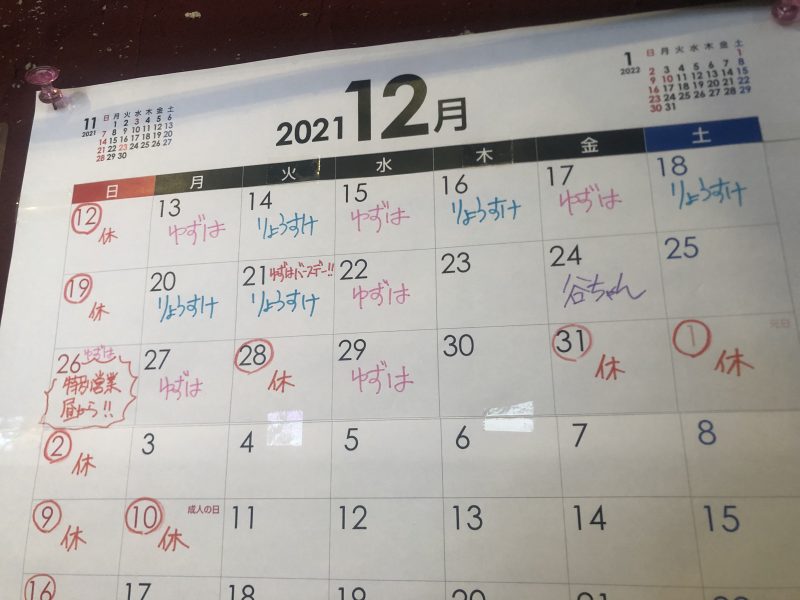 11 2021
日 月 火 水 木 金 土
1 2 3 4 5 6
7 8 9 10 11 12 13
14 15 16 17 18 19 20
21 22 23 24 25 26 27
28 29 30
2021 12月
1 2022
日 月 火 水 木 金 土
1
2 3 4 5 6 7 8
9 10 11 12 13 14 15
16 17 18 19 20 21 22
23 24 25 26 27 28 29
30 31
日 月 火 水 木 金 土
12 13 14 15 16 17 18
休 ゆずは りょうすけ ゆずは りょうすけ ゆずは りょうすけ
19 20 21 ゆずはバースデー!! 22 23 24 25
休 りょうすけ りょうすけ ゆずは 谷ちゃん
26 ゆずは 27 28 29 30 31 1 元日
特別営業 ゆずは 休 ゆずは 休 休
昼から!!
2 3 4 5 6 7 8
休
9 10 成人の日 11 12 13 14 15
休 休
16 17 18 19 20 21